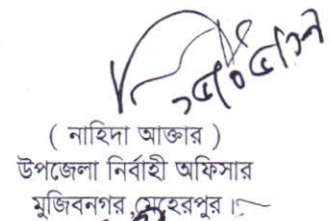 ( নাহিদা আক্তার )
উপজেলা নির্বাহী অফিসার
মুজিবনগর ,মেহেরপুর ।